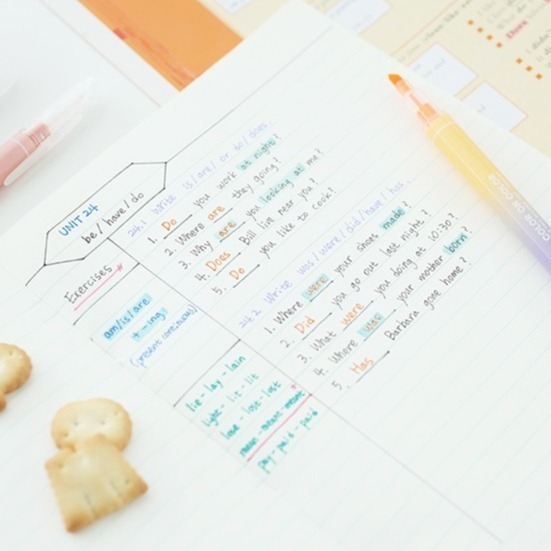 UNIT 24
be / have / do
Exercises
24.1 Write is / are / or do / does...
1. Do you work at night?
2. Where are they going?
3. Why are you looking at me?
4. Does Bill live near you?
5. Do you like to cook?
am/is/are
+ -ing
(present continuous)
24.2 Write was / were / did / have / has..
1. Where were your shoes made?
2. Did you go out last night?
3. What were you doing at 10:30?
4. Where was your mother born?
5. Has Barbara gone home?
lie - lay - lain
light - lit - lit
lose - lost - lost
mean - meant - meant
pay - paid - paid
COLOR OR COLOR